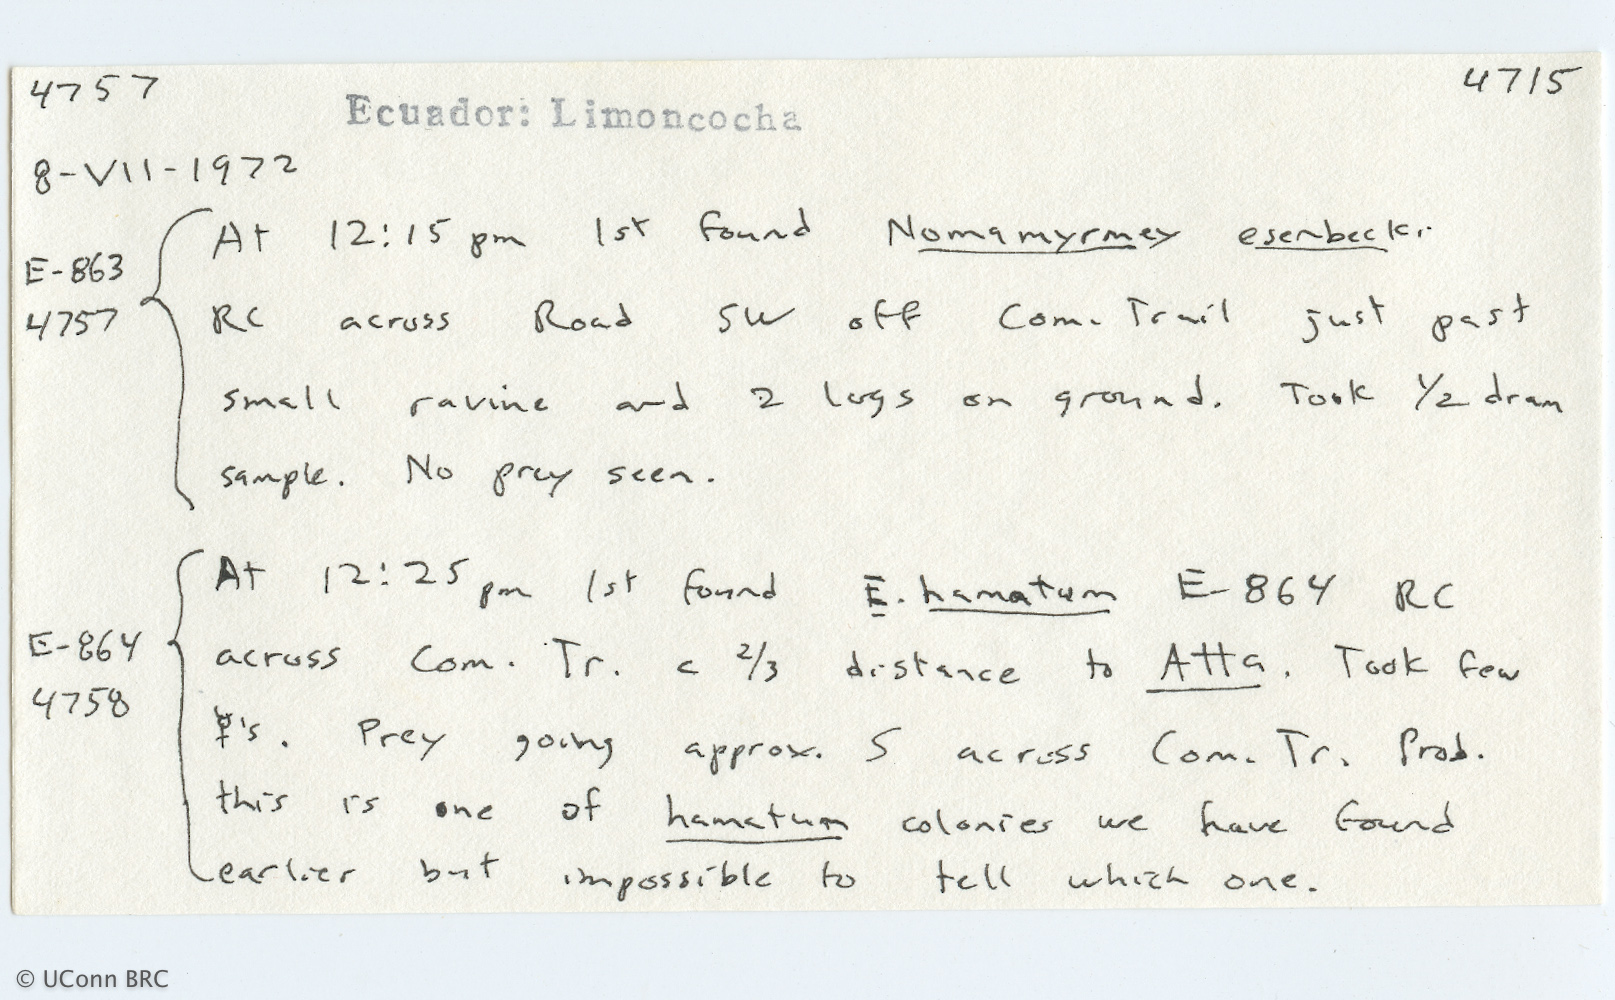 4757
4715
Ecuador: Limoncocha
8-VII-1972
E-863
4757
At 12:15 pm 1st found Nomamyrmex esenbecki
RC across Road SW off Com. Trail just past
small ravine and 2 logs on ground. Took 1/2 dram
sample. No prey seen.
E-864
4758
At 12:25 pm 1st found E. hamatum E-864 RC
across Com. Tr. c 2/3 distance to Atta. Took few
☿'s. Prey going approx. S across Com. Tr. Prob.
this is one of hamatum colonies we have found
earlier but impossible to tell which one.
© UConn BRC